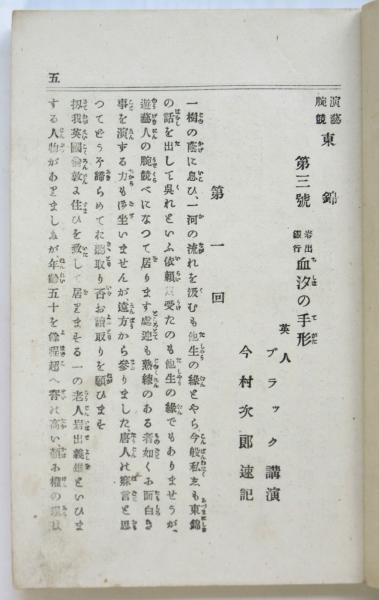 五
演藝腕競 東錦
第三號 岩出銀行 血汐の手形
英人 ブラック講演
今村次郎速記
第一回
一樹の蔭に息ひ、一河の流れを汲むも他生の緣とやら今般私しも東錦
の話を出して呉れといふ依賴を受たのも他生の緣でもありませうが、
遊藝人の腕競べになつて居ります處迚も熟練のある者如くお面白き
事を演ずる力も御坐いませんが遠方から參りました唐人の寐言と思
つてどうぞ諦らめてお聽取り否お讀取りを願ひませ
扨我英國倫敦よ住ひを致して居りまする一の老人岩出義雄といひま
する人物がありましたが年齡五十を餘程超へ脊は高い